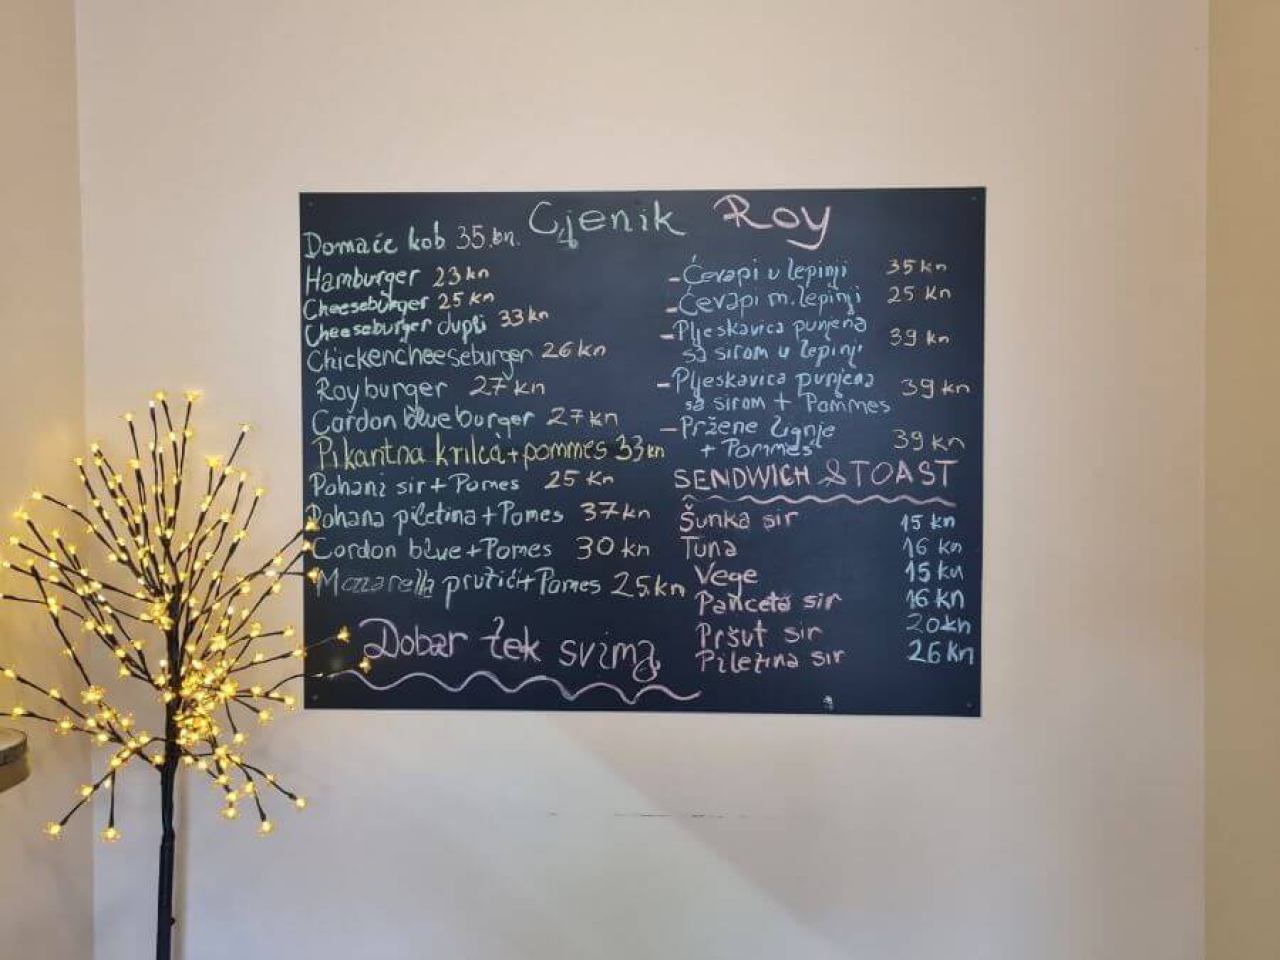 Cjenik Roy
Domaće kob. 35 kn.
Hamburger 23 kn
Cheeseburger 25 kn
Cheeseburger dupli 33 kn
Chickencheeseburger 26 kn
Royburger 27 kn
Cordon blue burger 27 kn
Pikantna krilca + pommes 33 kn
Pohani sir + Pomes 25 Kn
Pohana piletina + Pomes 37 kn
Cordon blue + Pomes 30 kn
Mozzarella prutići + Pomes 25.kn
Dobar tek svima
- Ćevapi u lepinji 35 kn
- Ćevapi m. lepinji 25 Kn
- Pljeskavica punjena
sa sirom u lepinji 39 kn
- Pljeskavica punjena
sa sirom + Pommes 39 kn
- Pržene lignje
+ Pommes 39 kn
SENDWICH & TOAST
Šunka sir 15 kn
Tuna 16 kn
Vege 15 kn
Panceta sir 16 kn
Pršut sir 20 kn
Piletina sir 26 kn